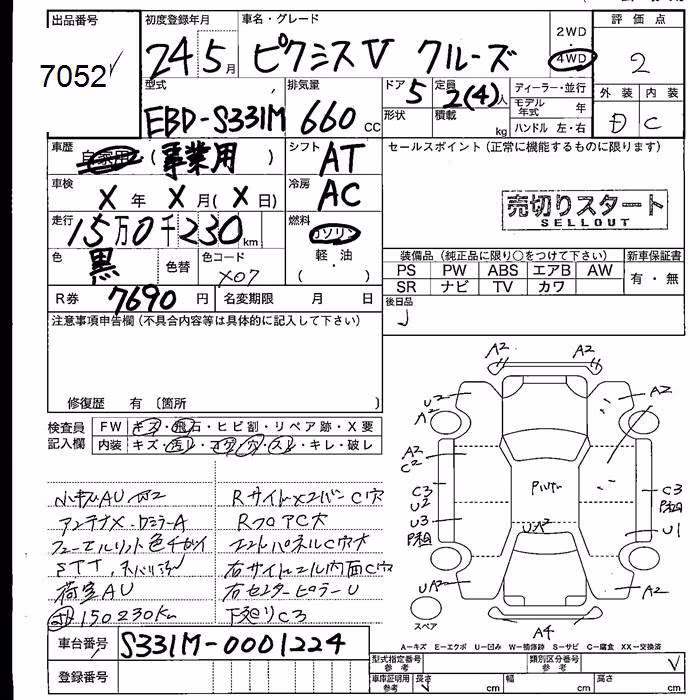 出品番号 初度登録年月 車名・グレード 2WD 評価点
7052 24 5月 ピクシス V クルーズ 4WD 2
型式 排気量 ドア 5 定員 2(4)人 ディーラー・並行 外装 内装
EBD-S331M 660 cc 形状 積載 kg モデル年式 年 D C
ハンドル 左・右
車歴 自家用 (事業用) シフト AT セールスポイント (正常に機能するものに限ります)
車検 X年 X月(X日) 冷房 AC
売切りスタート
SELLOUT
走行 15万0千230km 燃料 ガソリン
軽・油
( )
色 黒 色替 色コード X07
装備品 (純正品に限り○をつけて下さい) 新車保証書
PS PW ABS エアB AW 有・無
SR ナビ TV カワ
R券 7690円 名変期限 月 日 後日品
注意事項申告欄 (不具合内容等は具体的に記入して下さい)
修復歴 有 〔箇所 〕
検査員記入欄 FW キズ・飛石・ヒビ割・リペア跡・X要
内装 キズ・汚れ・コゲ・穴・スレ・キレ・破レ
AU
Rサイドメンバー C穴
アンテナX
RフロアC穴
色
エンドパネルC穴大
STT
右サイドシル内面C穴
荷室AU
右センターピラーU
150230km
下廻りC3
A2 A2
U2 A2
A2
A2
C2
C3
U2 C3
U3 U1
UA2
A2
スペア
A4
A-キズ E-エクボ U-凹み W-補修跡 S-サビ C-腐食 XX-交換済
車台番号 S331M-0001224
型式指定番号 参考 類別区分番号 参考
登録番号
車庫証明用 参考 長さ cm 幅 cm 高さ cm